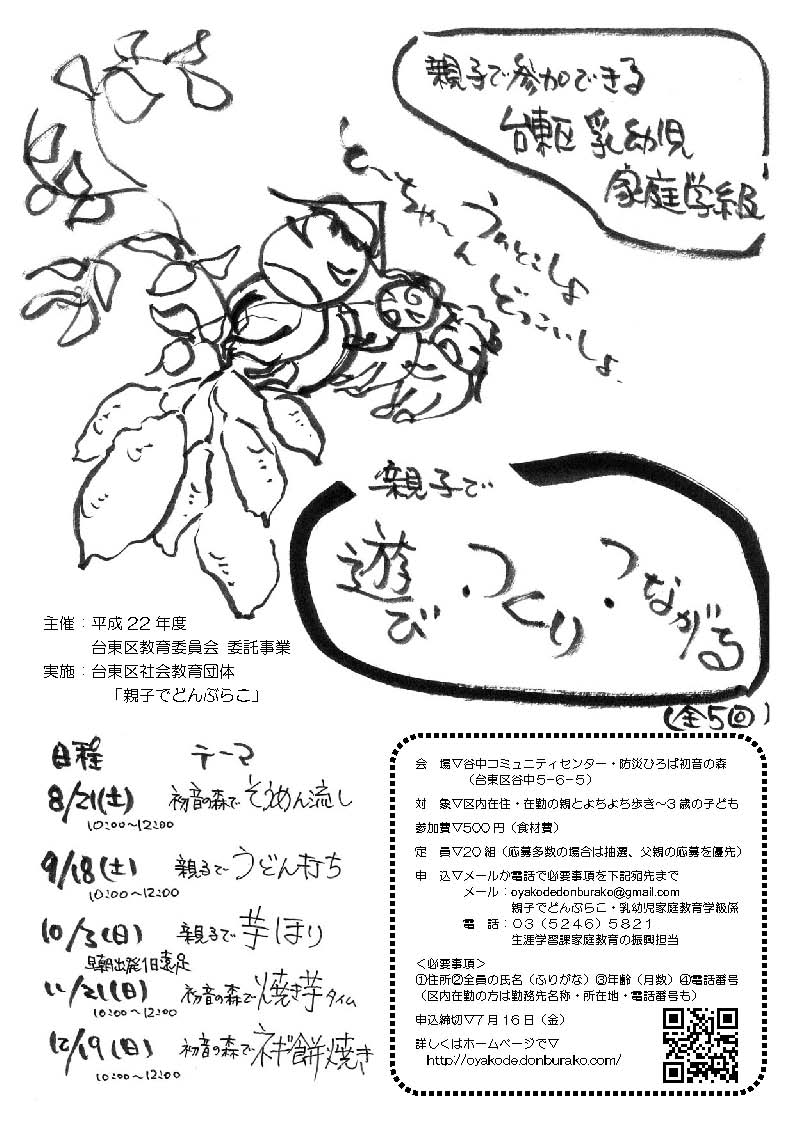 親子で参加できる
台東区乳幼児
家庭学級
とーちゃーん
うんとこしょ
どっこいしょ
親子で
遊び・つくり・つながる
(全5回)
主催：平成22年度
台東区教育委員会 委託事業
実施：台東区社会教育団体
「親子でどんぶらこ」
日程 テーマ
8/21(土) 初音の森でそうめん流し
10:00〜12:00
9/18(土) 親子でうどん打ち
10:00〜12:00
10/3(日) 親子で芋ほり
早朝出発1日遠足
11/21(日) 初音の森で焼き芋タイム
10:00〜12:00
12/19(日) 初音の森でネギ餅焼き
10:00〜12:00
会　場▽谷中コミュニティセンター・防災ひろば初音の森
（台東区谷中5-6-5）
対　象▽区内在住・在勤の親とよちよち歩き〜3歳の子ども
参加費▽500円（食材費）
定　員▽20組（応募多数の場合は抽選、父親の応募を優先）
申　込▽メールか電話で必要事項を下記宛先まで
メール：oyakodedonburako@gmail.com
親子でどんぶらこ・乳幼児家庭教育学級係
電　話：03（5246）5821
生涯学習課家庭教育の振興担当
＜必要事項＞
①住所②全員の氏名（ふりがな）③年齢（月数）④電話番号
（区内在勤の方は勤務先名称・所在地・電話番号も）
申込締切▽7月16日（金）
詳しくはホームページで▽
http://oyakode.donburako.com/